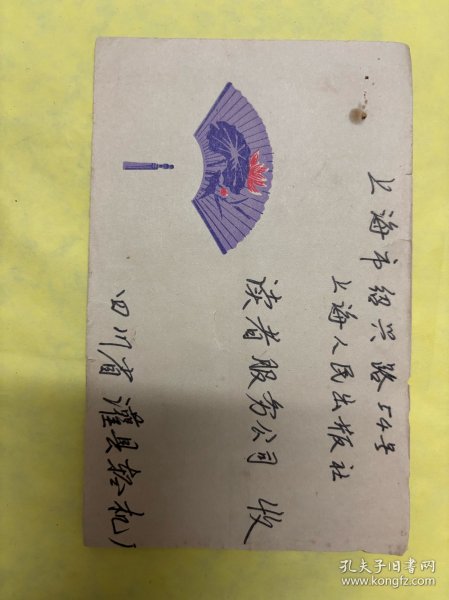 上海市绍兴路54号
上海人民出版社
读者服务公司 收
四川省灌县轻机厂
孔夫子旧书网
www.kongfz.com